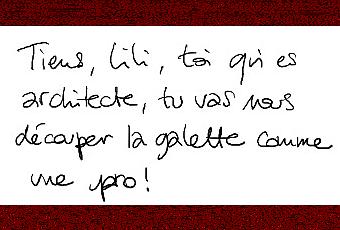 Tiens, Lili, toi qui es
architecte, tu vas nous
découper la galette comme
une pro !